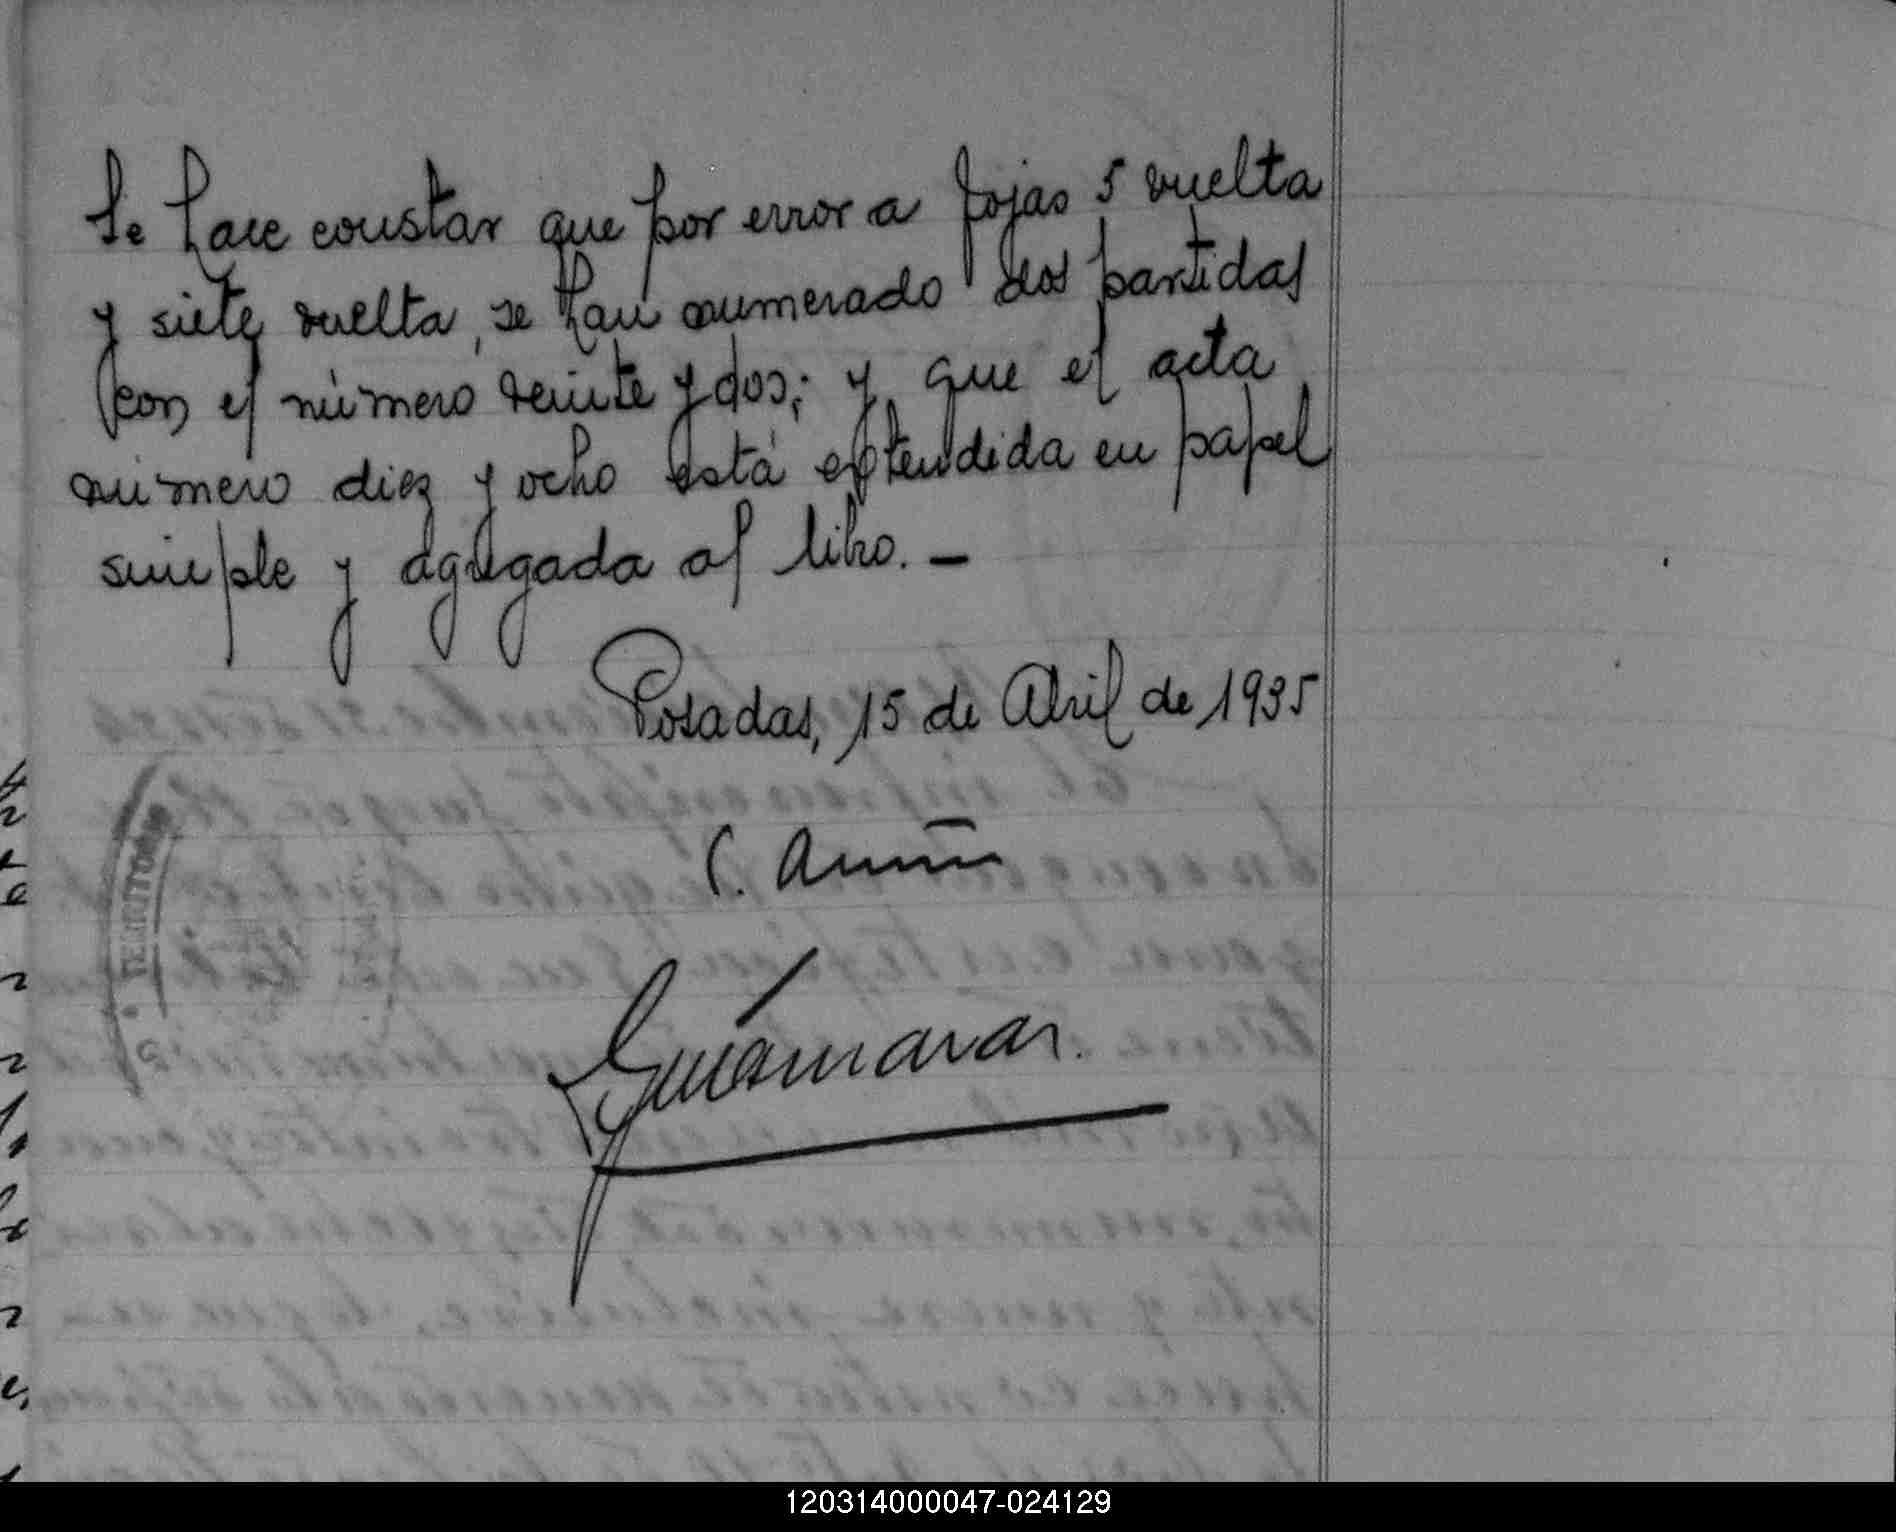 Se hace constar que por error a fojas 5 vuelta
y siete vuelta, se han numerado dos partidas
con el número veinte y dos; y que el acta
número diez y ocho está extendida en papel
simple y agregada al libro. —
Posadas, 15 de Abril de 1935
TERRITORIO
120314000047-024129